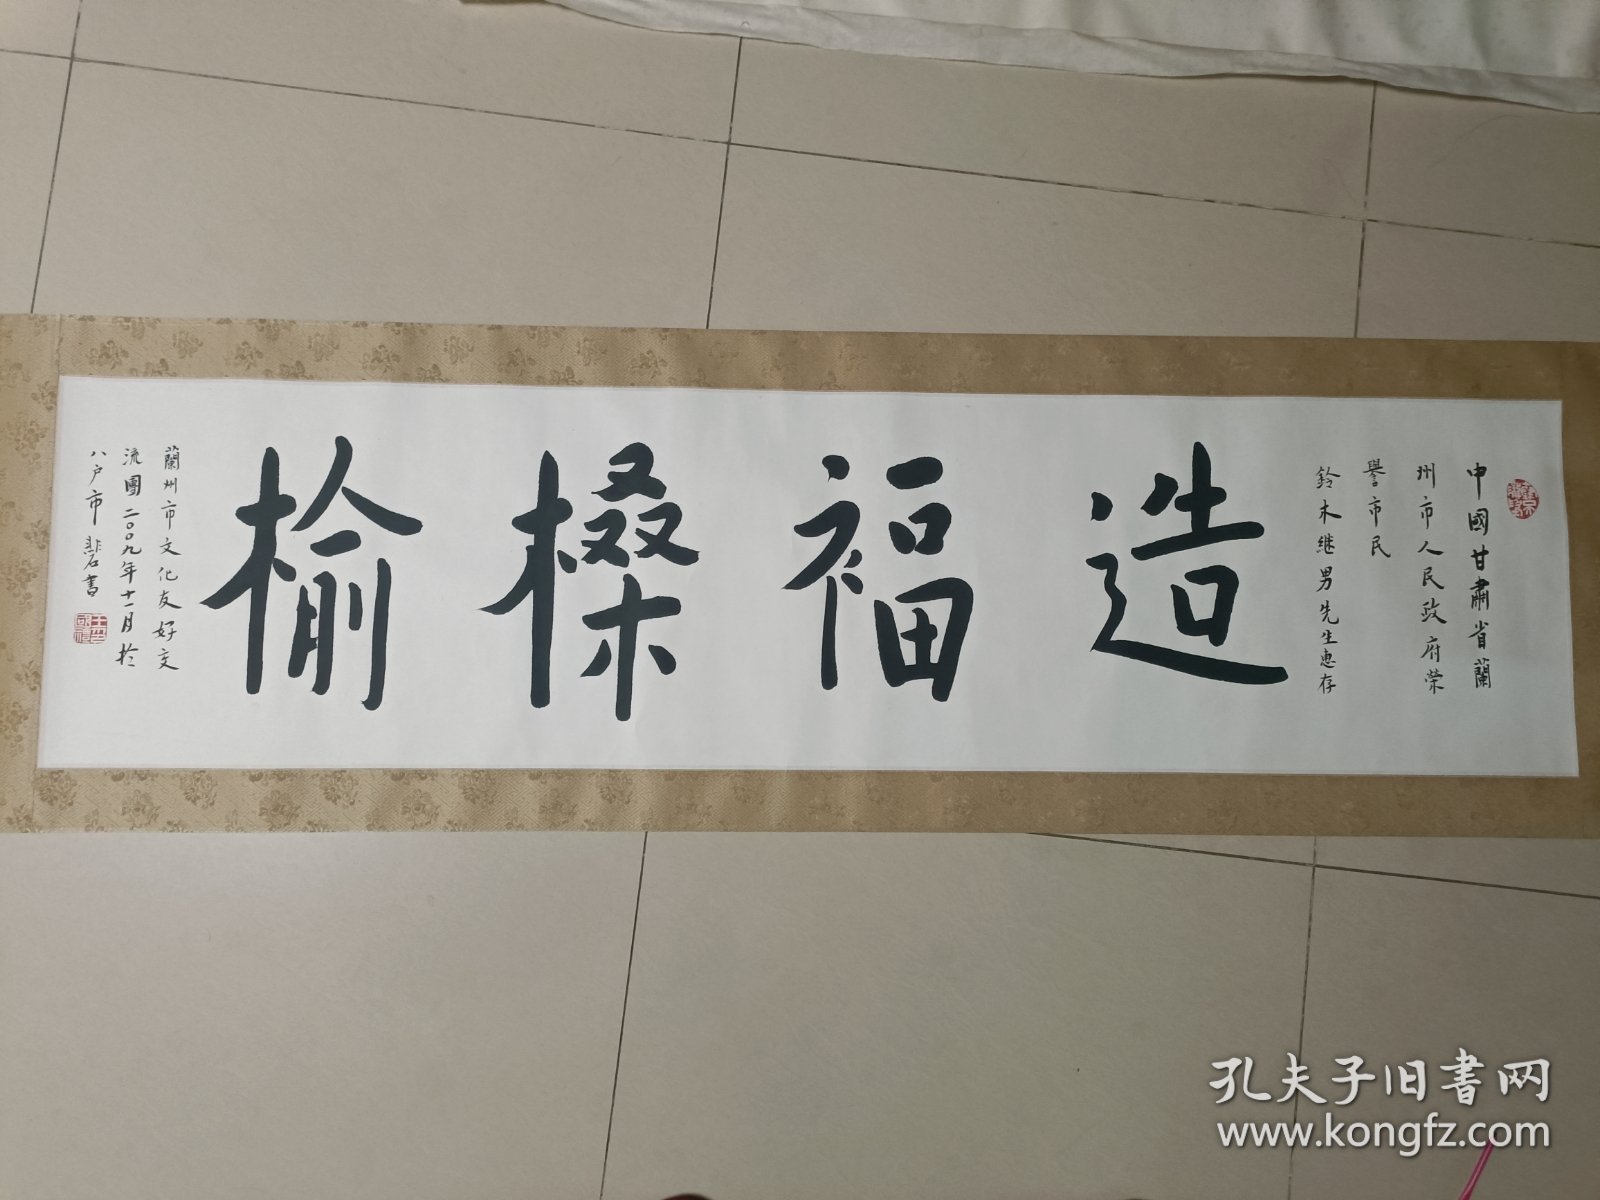 造福槡榆
中國甘肅省蘭
州市人民政府榮
譽市民
鈴木继男先生惠存
蘭州市文化友好交
流團二〇〇九年十一月於
八户市 碧書
孔夫子旧书网
www.kongfz.com